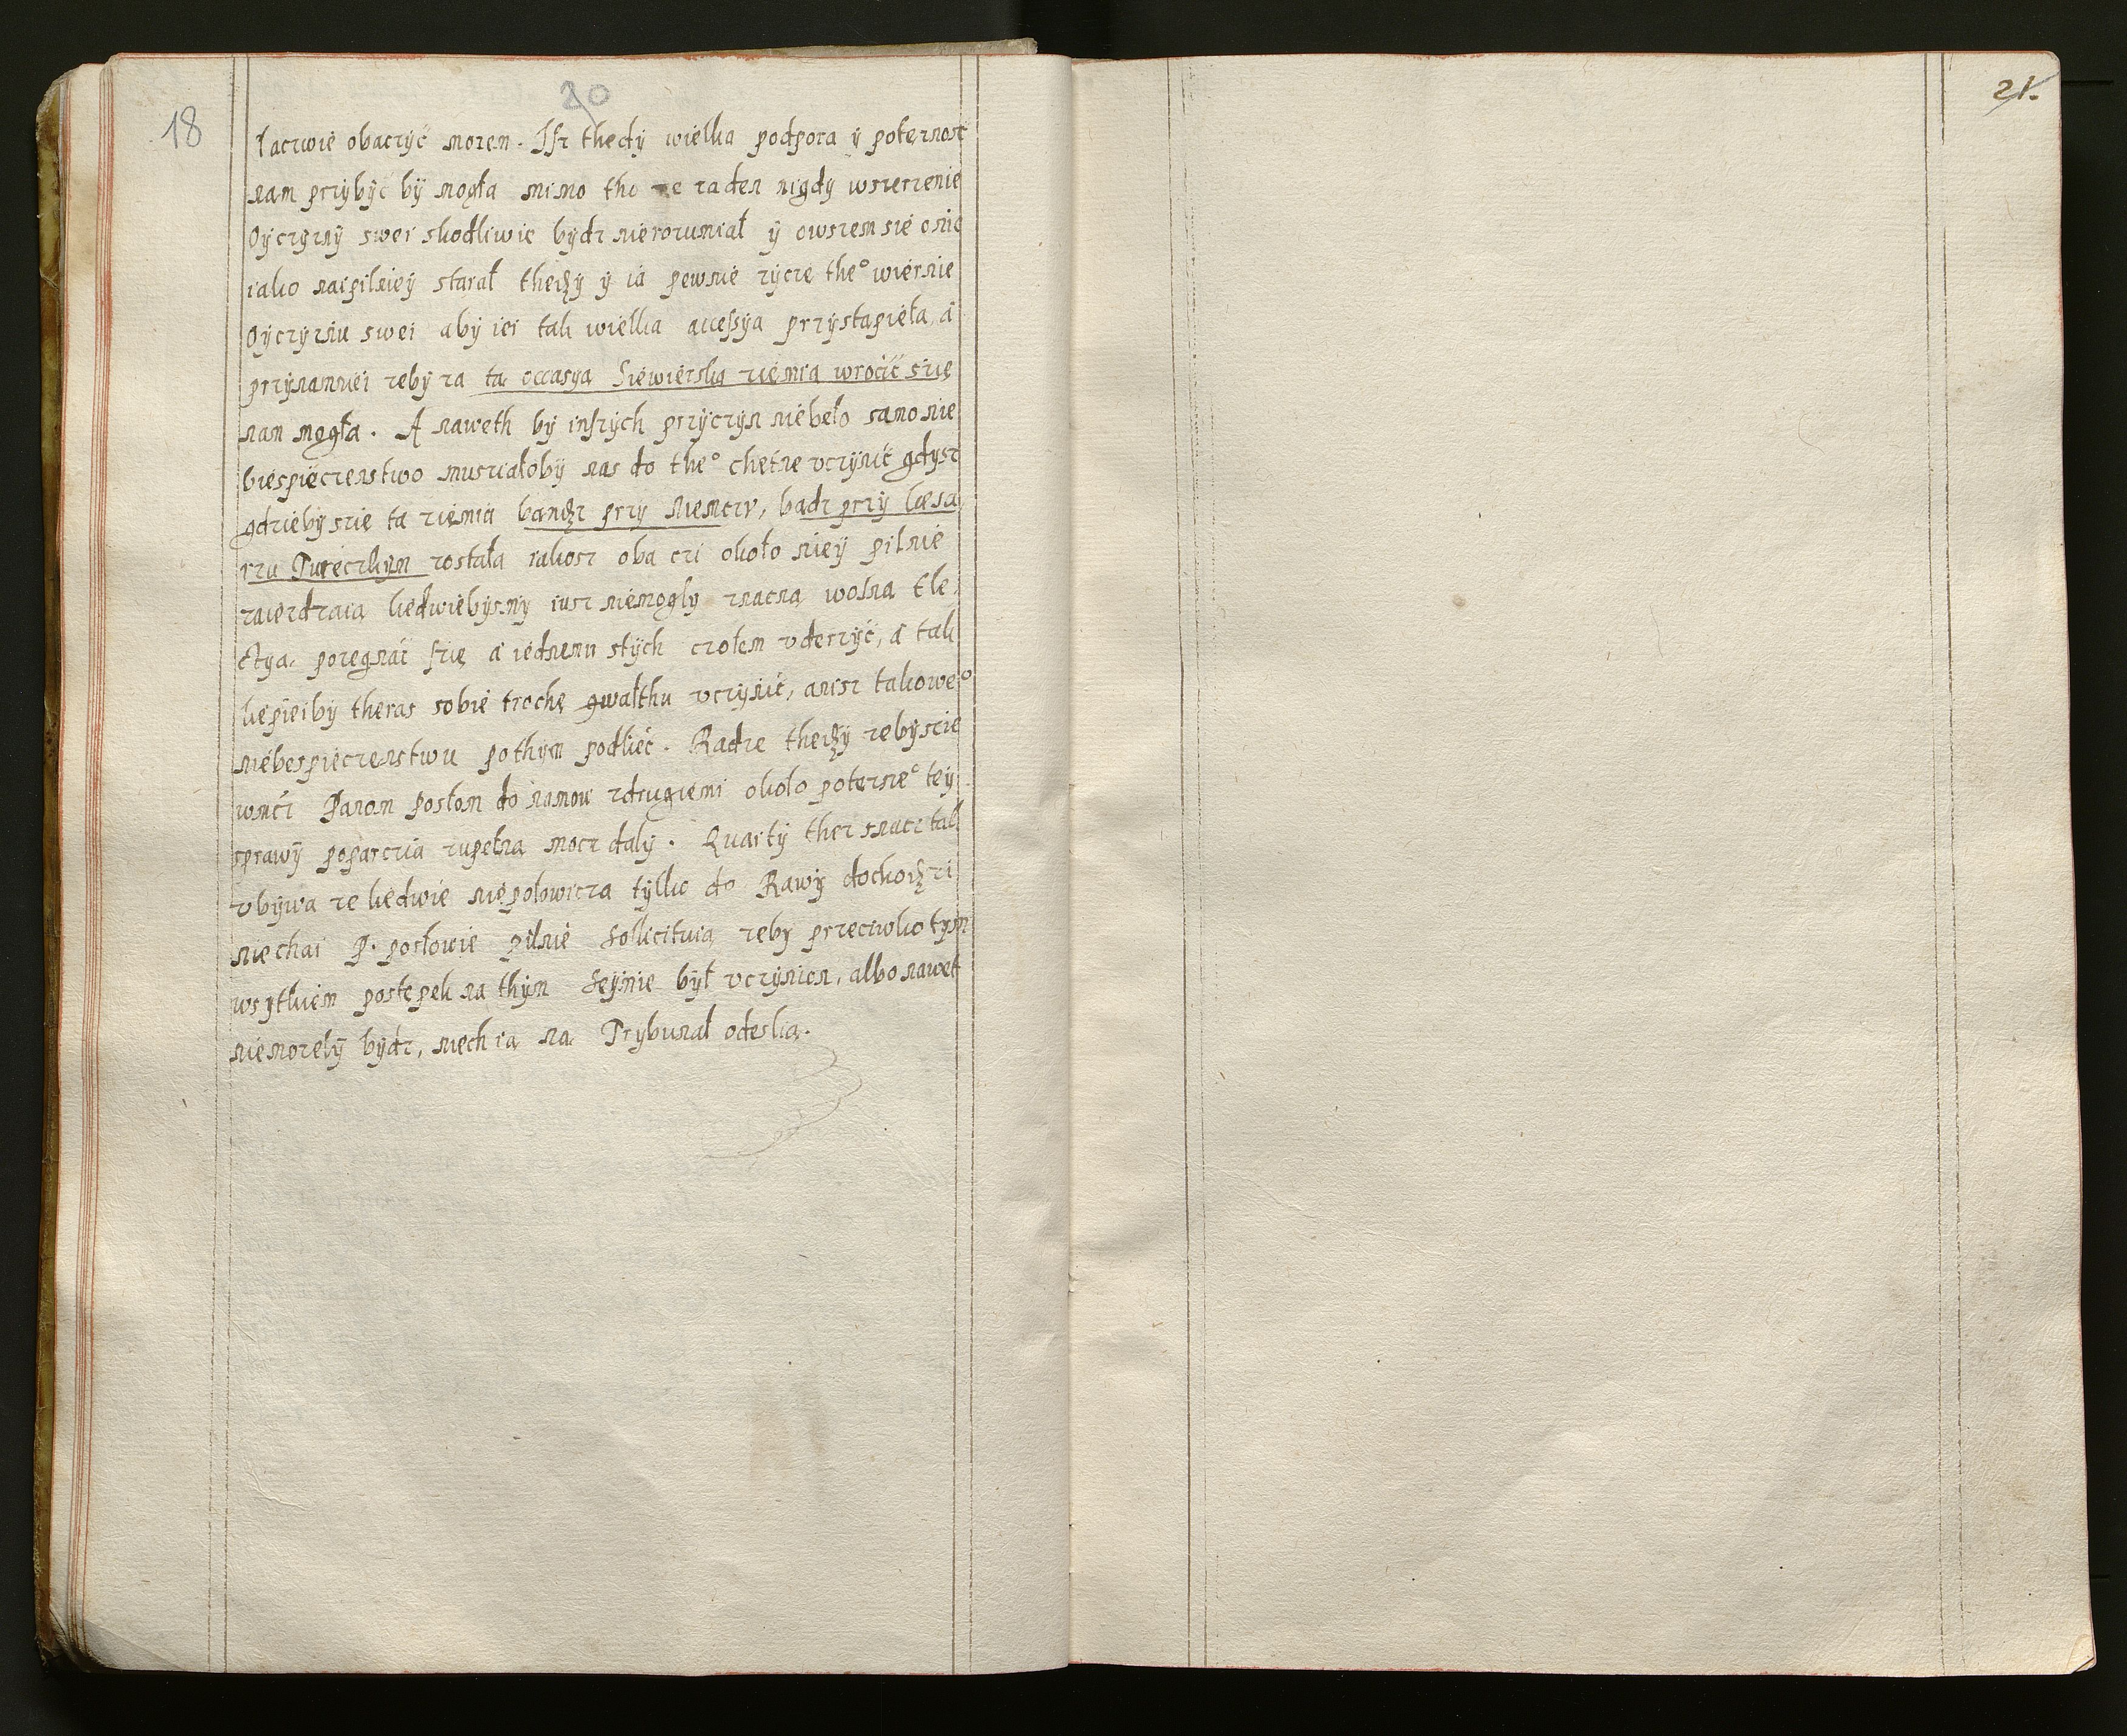 20
18
21.
łaczwie obaczÿć mozem. Isz thedÿ wielka podpora ÿ potęznosć
nam przÿbÿć bÿ mogła mimo tho ze zaden nigdy wszeczenie
Oÿczÿznÿ swei skodliwie bydz nierozumiał ÿ owszem sie o nię
iako naipilnieÿ starał thedÿ ÿ ia pewnie zÿczę the° wiernie
Oÿczÿznu swei abÿ iei tak wielka accessÿa przÿstapieła, á
przÿnamniei zebÿ za ta occasya Siewierska ziemia wrocić szię
nam mogła. A naweth bÿ inszÿch przÿczÿn niebeło samo nie
biespieczenstwo musziałobÿ nas do the° chetne vczÿnić gdysz
gdziebÿ szie ta ziemia bandz przy Niemczv, badz przÿ Cesa
rzu Tureczkym została iakosz oba czi około nieÿ pilnie
zaiezdzaia ledwiebysmÿ iusz niemogly znaczna wolna Ele,
ctya. pozegnáć szię á iednemu stÿch czołem vderzÿć, á tak
lepieibÿ theras sobie trochę gwałthu vczynić, anisz takowe°
niebespieczenstwu pothÿm podlieć. Radze thedÿ zebyscie
wmćz Panom Posłom do namow zdrugiemi około potęzne° teÿ
sprawÿ poparczia zupełna mocz daly. Quartÿ thez snacz tak
vbÿwa ze ledwie niepołowicza tÿlko do Rawÿ dochodzi
niechai P. posłowie pilnie sollicituia zeby przeciwko tym
wsytkiem postępek na thÿm Seÿmie był vczÿnion, albo nawet
niemozelÿ bÿdz, niech ia na Trybunał odeslia.